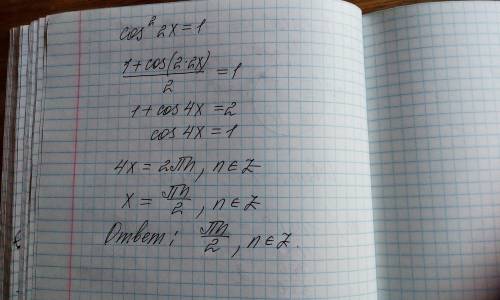 cos² 2x = 1
(1 + cos(2·2x))/2 = 1
1 + cos 4x = 2
cos 4x = 1
4x = 2πn, n ∈ Z
x = πn/2, n ∈ Z
Ответ: πn/2, n ∈ Z.